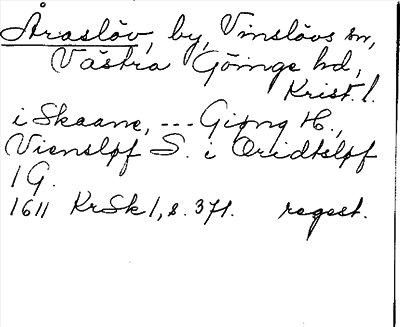 Åraslöv, by, Vinslövs sn,
Västra Göinge hd,
Krist. l.
i Skaane, --- Giøng H.,
Viensløf S. i Oridtsløf
1 G.
1611 KrSk 1, s. 371. regest.